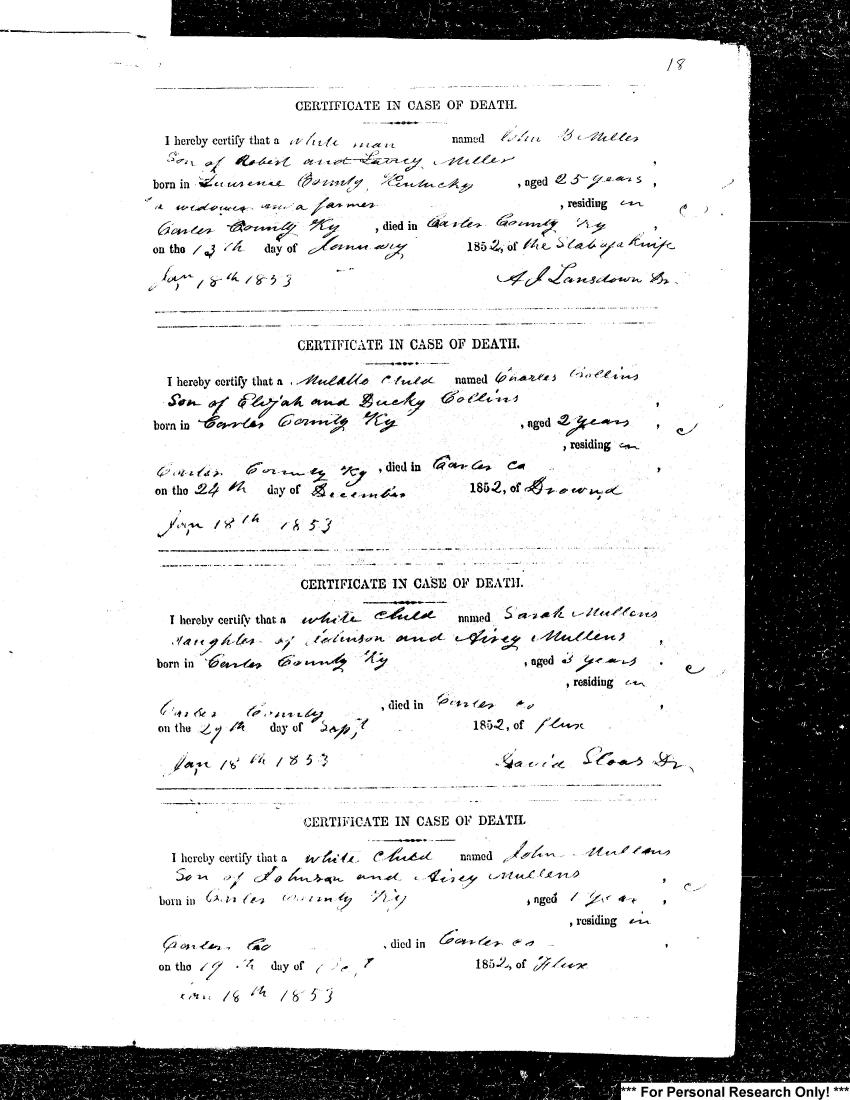 18
CERTIFICATE IN CASE OF DEATH.
I hereby certify that a white man named John B Miller
Son of Robert and Miller ,
born in Lawrence County, Kentucky , aged 25 years ,
a widower and a farmer , residing in
Carter County Ky , died in Carter County Ky ,
on the 13th day of January 1852, of the Stab of a Knife
Jan 18th 1853 A J Lansdown Dr.
CERTIFICATE IN CASE OF DEATH.
I hereby certify that a Mulatto Child named Charles Collins
Son of Elijah and Ducky Collins ,
born in Carter County Ky , aged 2 years ,
, residing in
Carter County Ky , died in Carter co ,
on the 24th day of December 1852, of Drownd
Jan 18th 1853
CERTIFICATE IN CASE OF DEATH.
I hereby certify that a white Child named Sarah Mullens
daughter of Johnson and Airey Mullens ,
born in Carter County Ky , aged 3 years .
, residing in
Carter County , died in Carter co ,
on the 29th day of Sept 1852, of flux
Jan 18th 1853 David Sloas Dr.
CERTIFICATE IN CASE OF DEATH.
I hereby certify that a white Child named John Mullens
Son of Johnson and Airey Mullens ,
born in Carter County Ky , aged 1 year ,
, residing in
Carter Co , died in Carter co .
on the 19th day of 1852, of Flux
Jan 18th 1853
*** For Personal Research Only! ***